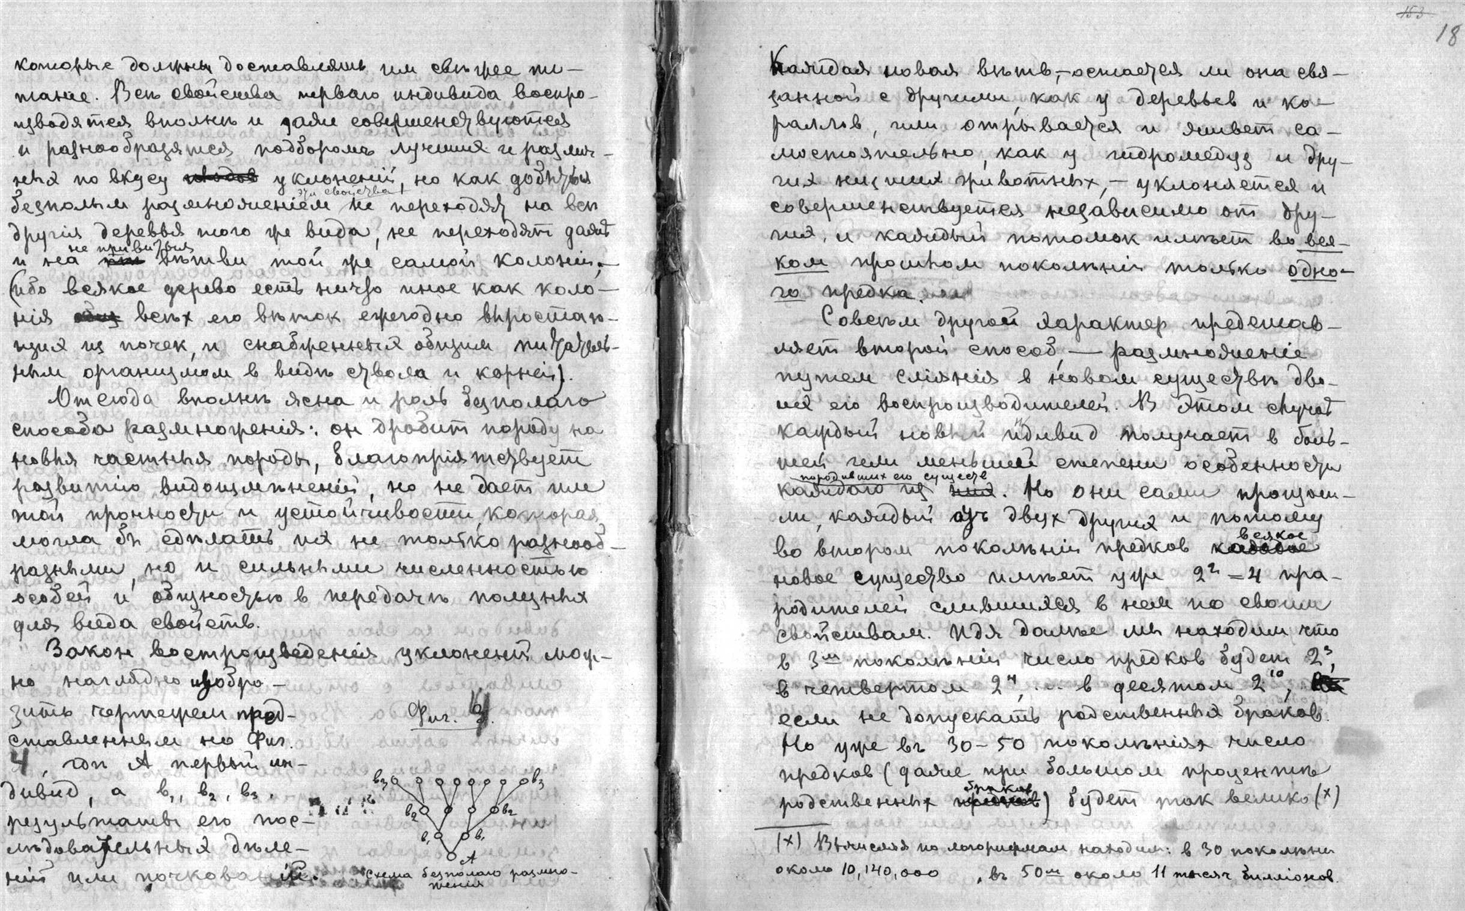 которые должны доставлять им свежее пи-
тание. Все свойства перваго индивида воспро-
изводятся вполнѣ и даже совершенствуются
и разнообразятся подбором лучших и различ-
ных по вкусу уклонений, но как добытыя
эти свойства
безполым размножением не переходят на всѣ
другія деревья того же вида, не переходят даже
не привитыя
и на вѣтви той же самой колоніи,—
(ибо всякое дерево есть ничто иное как коло-
нія всѣх его вѣток ежегодно выростаю-
щих из почек, и снабженных общим питатель-
ным организмом в видѣ ствола и корней).
Отсюда вполнѣ ясна и роль безполаго
способа размножения: он дробит породу на
новыя частныя породы, благоприятствует
развитію видоизмѣнений, но не дает им
той прочности и устойчивости, которая
могла бы сдѣлать их не только разнооб-
разными, но и сильными численностью
особей и общностью в передачѣ полезных
для вида свойств.
Закон воспроизведения уклонений мож-
но наглядно изобра-
зить чертежем пред-
ставленным на Фиг.
4, гдѣ А первый ин-
дивид, а в₁, в₂, в₃,
результаты его пос-
лѣдовательных дѣле-
ний или почкований.
Фиг. 4.
в₃ в₃
в₂ в₂
в₁ в₁
А
Схема безполаго размно-
жения
153
18
Каждая новая вѣтвь,—остается ли она свя-
занной с другими, как у деревьев и ко-
раллов, или отрывается и живет са-
мостоятельно, как у гидромедуз и дру-
гих низших животных,—уклоняется и
совершенствуется независимо от дру-
гих, и каждый потомок имѣет во вся-
ком прошлом поколѣніи только одно-
го предка.
Совсѣм другой характер представ-
ляет второй способ — размножение
путем слiянiя в новом существѣ дво-
их его воспроизводителей. В этом случаѣ
каждый новый индивид получает в боль-
шей или меньшей степени особенности
породивших его существ
каждаго из них. Но они сами произош-
ли, каждый из двух других и потому
всякое
во втором поколѣніи предков каждое
новое существо имѣет уже 2² = 4 пра-
родителей слившихся в нем по своим
свойствам. Идя далѣе мы находим что
в 3м поколѣніи число предков будет 2³,
в четвертом 2⁴, ... в десятом 2¹⁰
если не допускать родственных браков.
Но уже въ 30–50 поколѣніях число
предков (даже при большом процентѣ
браков
родственных) будет так велико (х)
(х) Вычисляя по логарифмам находим: в 30 поколѣнии
около 10,140,000 , въ 50м около 11 тысяч биллионов.